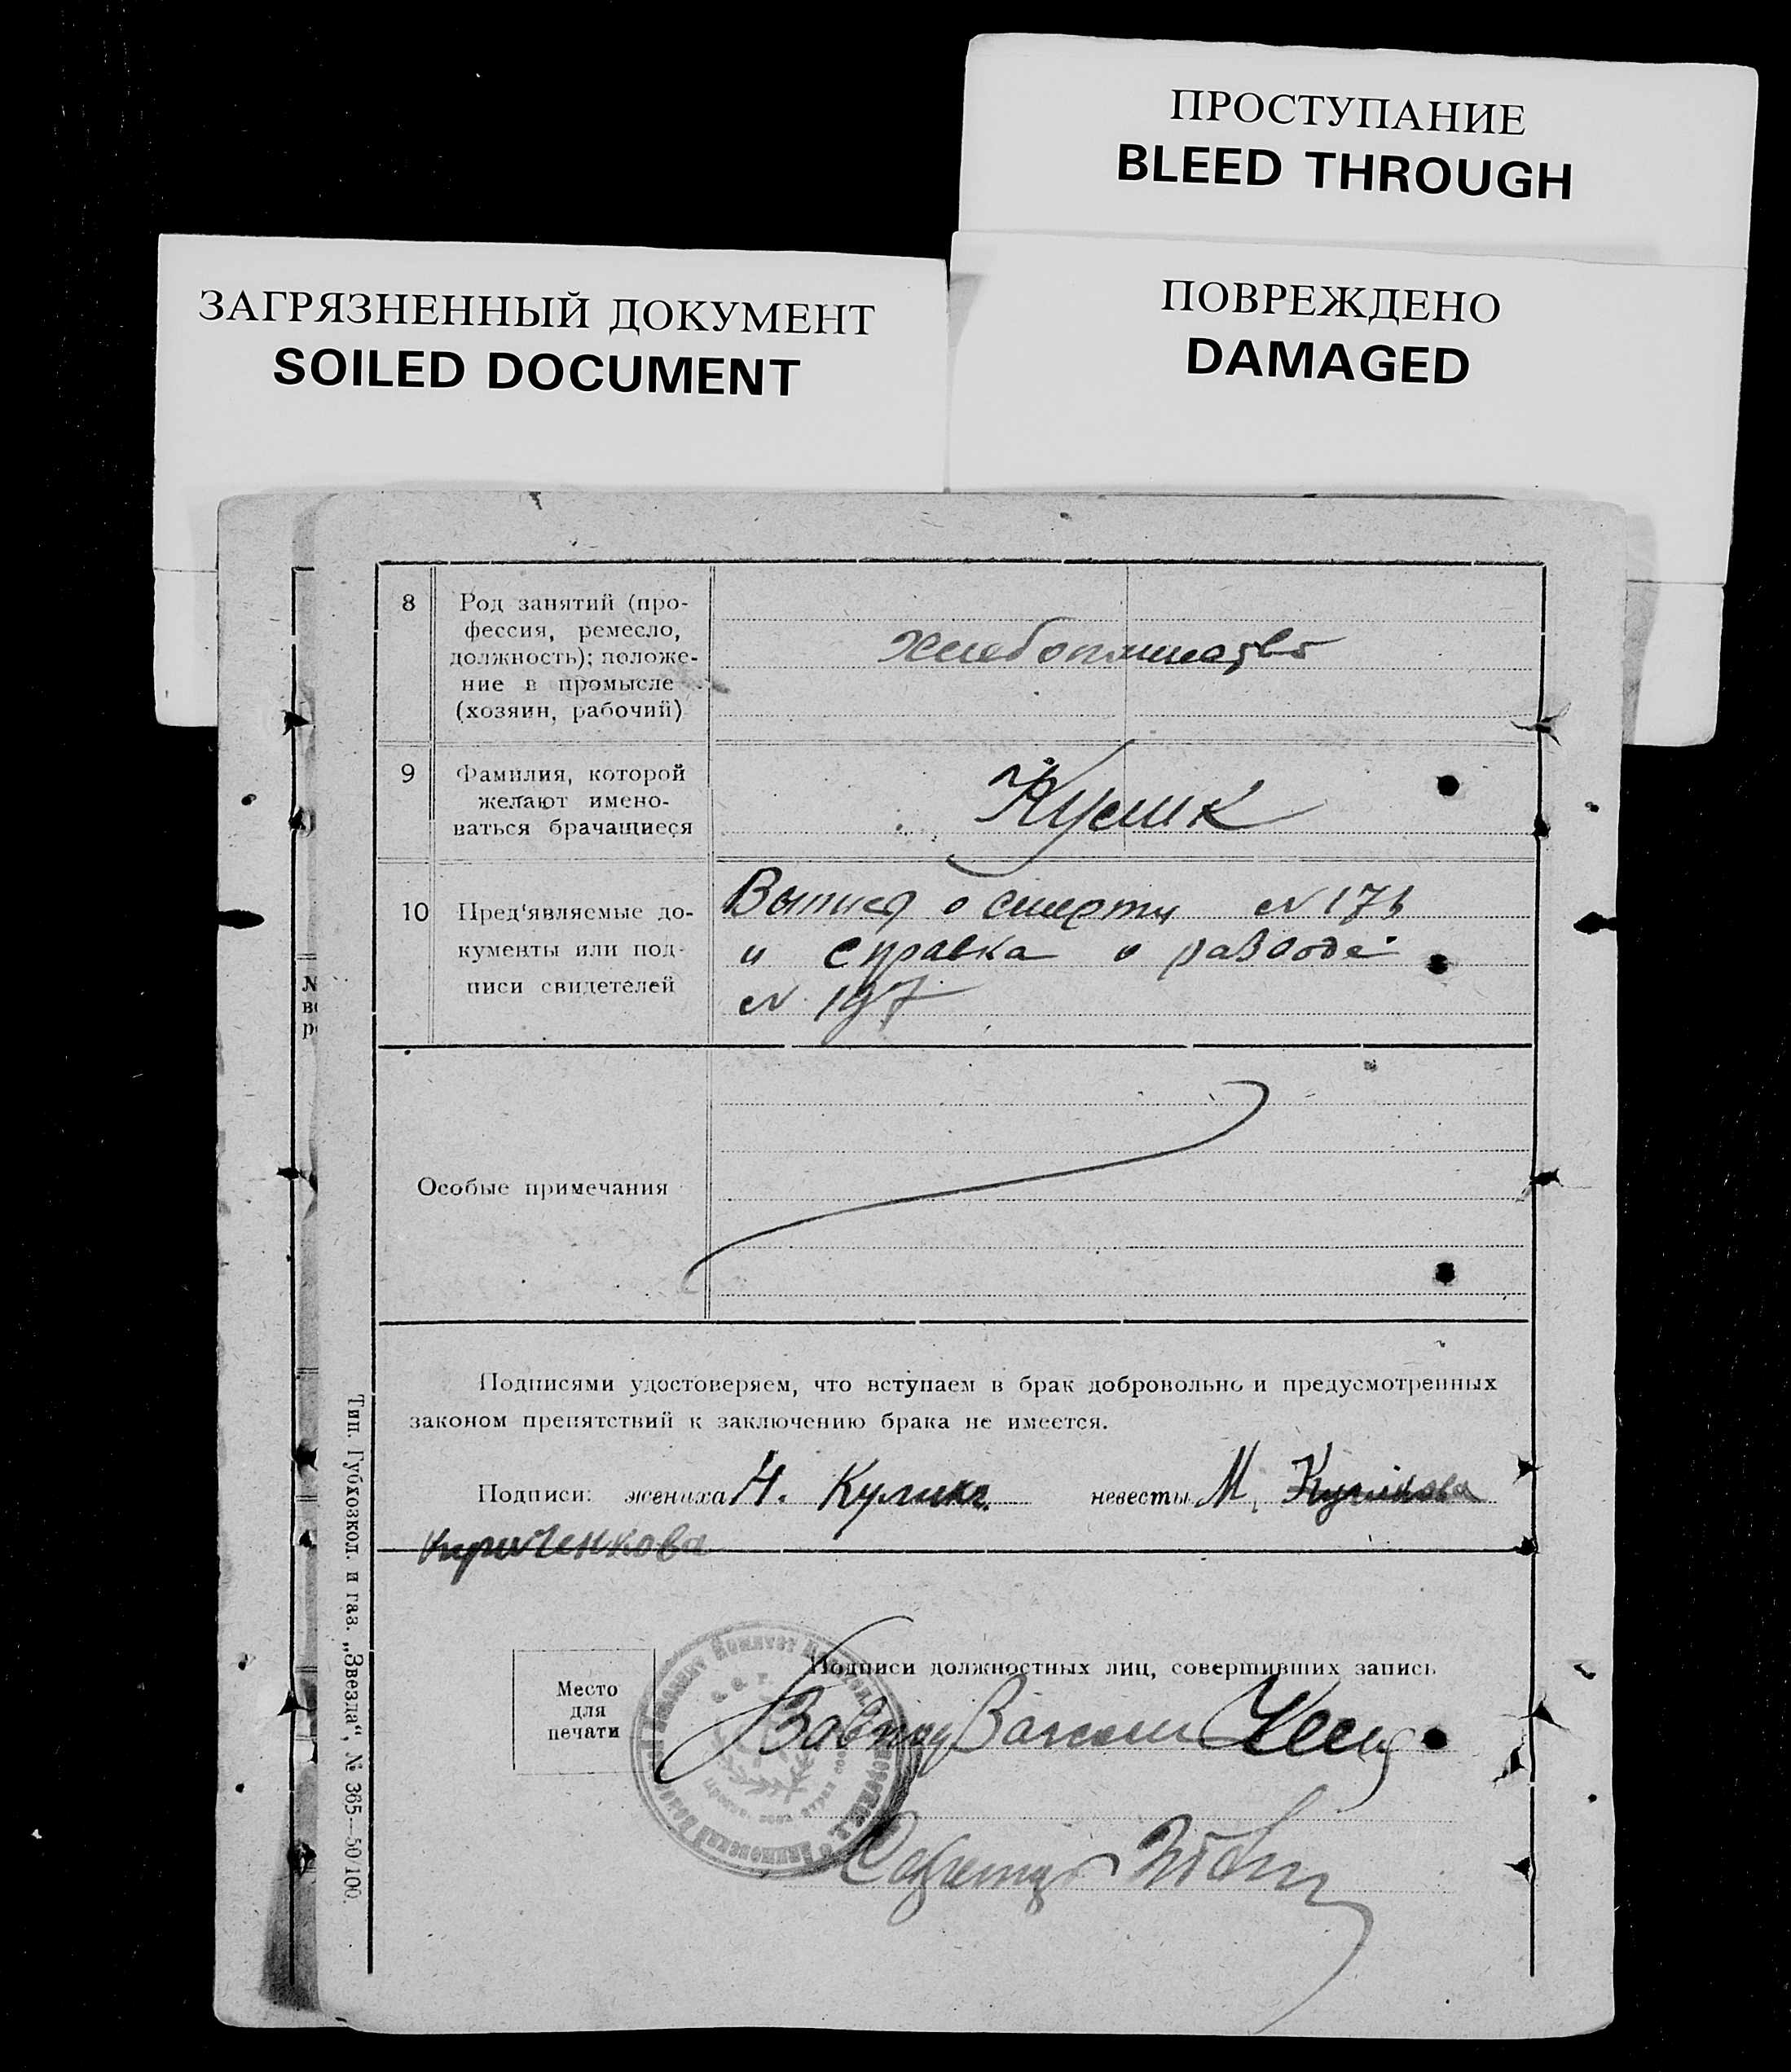 ПРОСТУПАНИЕ
BLEED THROUGH
ЗАГРЯЗНЕННЫЙ ДОКУМЕНТ
SOILED DOCUMENT
ПОВРЕЖДЕНО
DAMAGED
8 Род занятий (про-
фессия, ремесло,
должность); положе-
ние в промысле
(хозяин, рабочий)
хлебопашество
9 Фамилия, которой
желают имено-
ваться брачащиеся
Кулик
10 Пред'являемые до-
кументы или под-
писи свидетелей
Выпись о смерти №
и справка о разводе
№ 197
Особые примечания
Подписями удостоверяем, что вступаем в брак добровольно и предусмотренных
законом препятствий к заключению брака не имеется.
Подписи: жениха Н. Кулик невесты М.
Кириченкова
Место
для
печати
Подписи должностных лиц, совершивших запись
Секретарь
Тип. Губхозкол. и газ. „Звезда“, № 365—50/100.